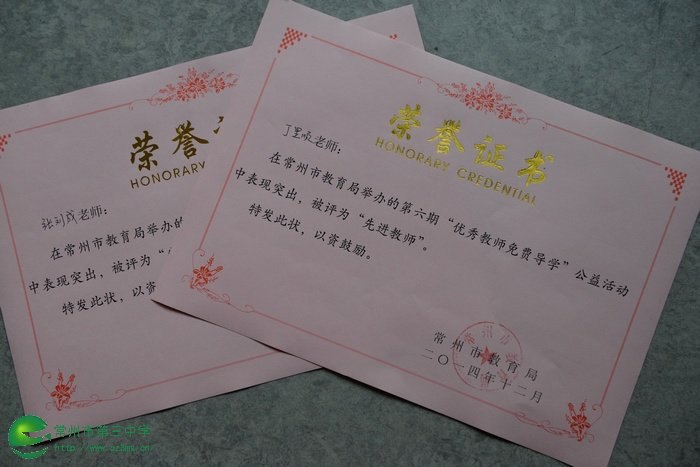 荣誉证书
HONORARY CREDENTIAL
老师：
在常州市教育局举办的第六期“优秀教师免费导学”公益活动
中表现突出，被评为“先进教师”。
特发此状，以资鼓励。
常州市教育局
二〇一四年十二月
荣誉
HONORARY
老师：
在常州市教育局举办的
中表现突出，被评为“
特发此状，以资
常州市第三中学